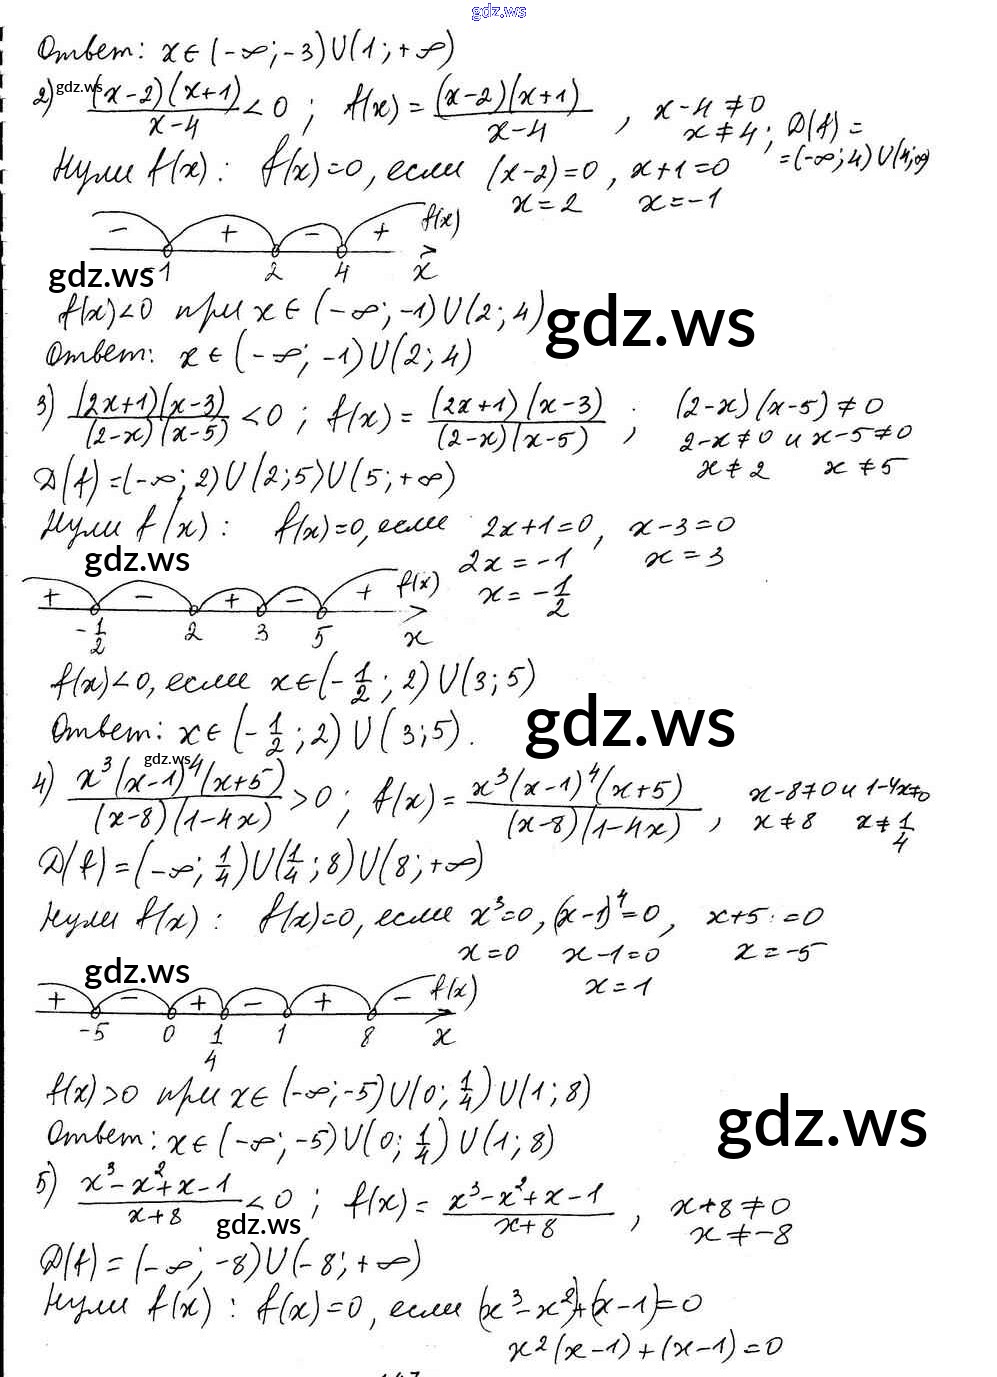 gdz.ws
Ответ: x∈(-∞;-3)∪(1;+∞)
2) (x-2)(x+1)/(x-4) < 0 ; f(x) = (x-2)(x+1)/(x-4) , x-4≠0
gdz.ws
x≠4; D(f)=
=(-∞;4)∪(4;∞)
Нули f(x): f(x)=0, если (x-2)=0, x+1=0
x=2 x=-1
- + - + f(x)
-1 2 4 x
gdz.ws
f(x)<0 при x∈(-∞;-1)∪(2;4)
gdz.ws
Ответ: x∈(-∞;-1)∪(2;4)
3) (2x+1)(x-3)/((2-x)(x-5)) < 0 ; f(x) = (2x+1)(x-3)/((2-x)(x-5)) , (2-x)(x-5)≠0
2-x≠0 и x-5≠0
x≠2 x≠5
D(f)=(-∞;2)∪(2;5)∪(5;+∞)
Нули f(x): f(x)=0, если 2x+1=0, x-3=0
gdz.ws
2x=-1 x=3
x=-1/2
+ - + - + f(x)
-1/2 2 3 5 x
f(x)<0, если x∈(-1/2;2)∪(3;5)
Ответ: x∈(-1/2;2)∪(3;5).
gdz.ws
gdz.ws
4) x³(x-1)⁴(x+5)/((x-8)(1-4x)) > 0 ; f(x) = x³(x-1)⁴(x+5)/((x-8)(1-4x)) , x-8≠0 и 1-4x≠0
x≠8 x≠1/4
D(f)=(-∞;1/4)∪(1/4;8)∪(8;+∞)
Нули f(x): f(x)=0, если x³=0, (x-1)⁴=0, x+5=0
x=0 x-1=0 x=-5
x=1
gdz.ws
+ - + - + - f(x)
-5 0 1/4 1 8 x
f(x)>0 при x∈(-∞;-5)∪(0;1/4)∪(1;8)
gdz.ws
Ответ: x∈(-∞;-5)∪(0;1/4)∪(1;8)
5) x³-x²+x-1/(x+8) < 0 ; f(x) = x³-x²+x-1/(x+8) , x+8≠0
gdz.ws
x≠-8
D(f)=(-∞;-8)∪(-8;+∞)
Нули f(x): f(x)=0, если (x³-x²)+(x-1)=0
x²(x-1)+(x-1)=0